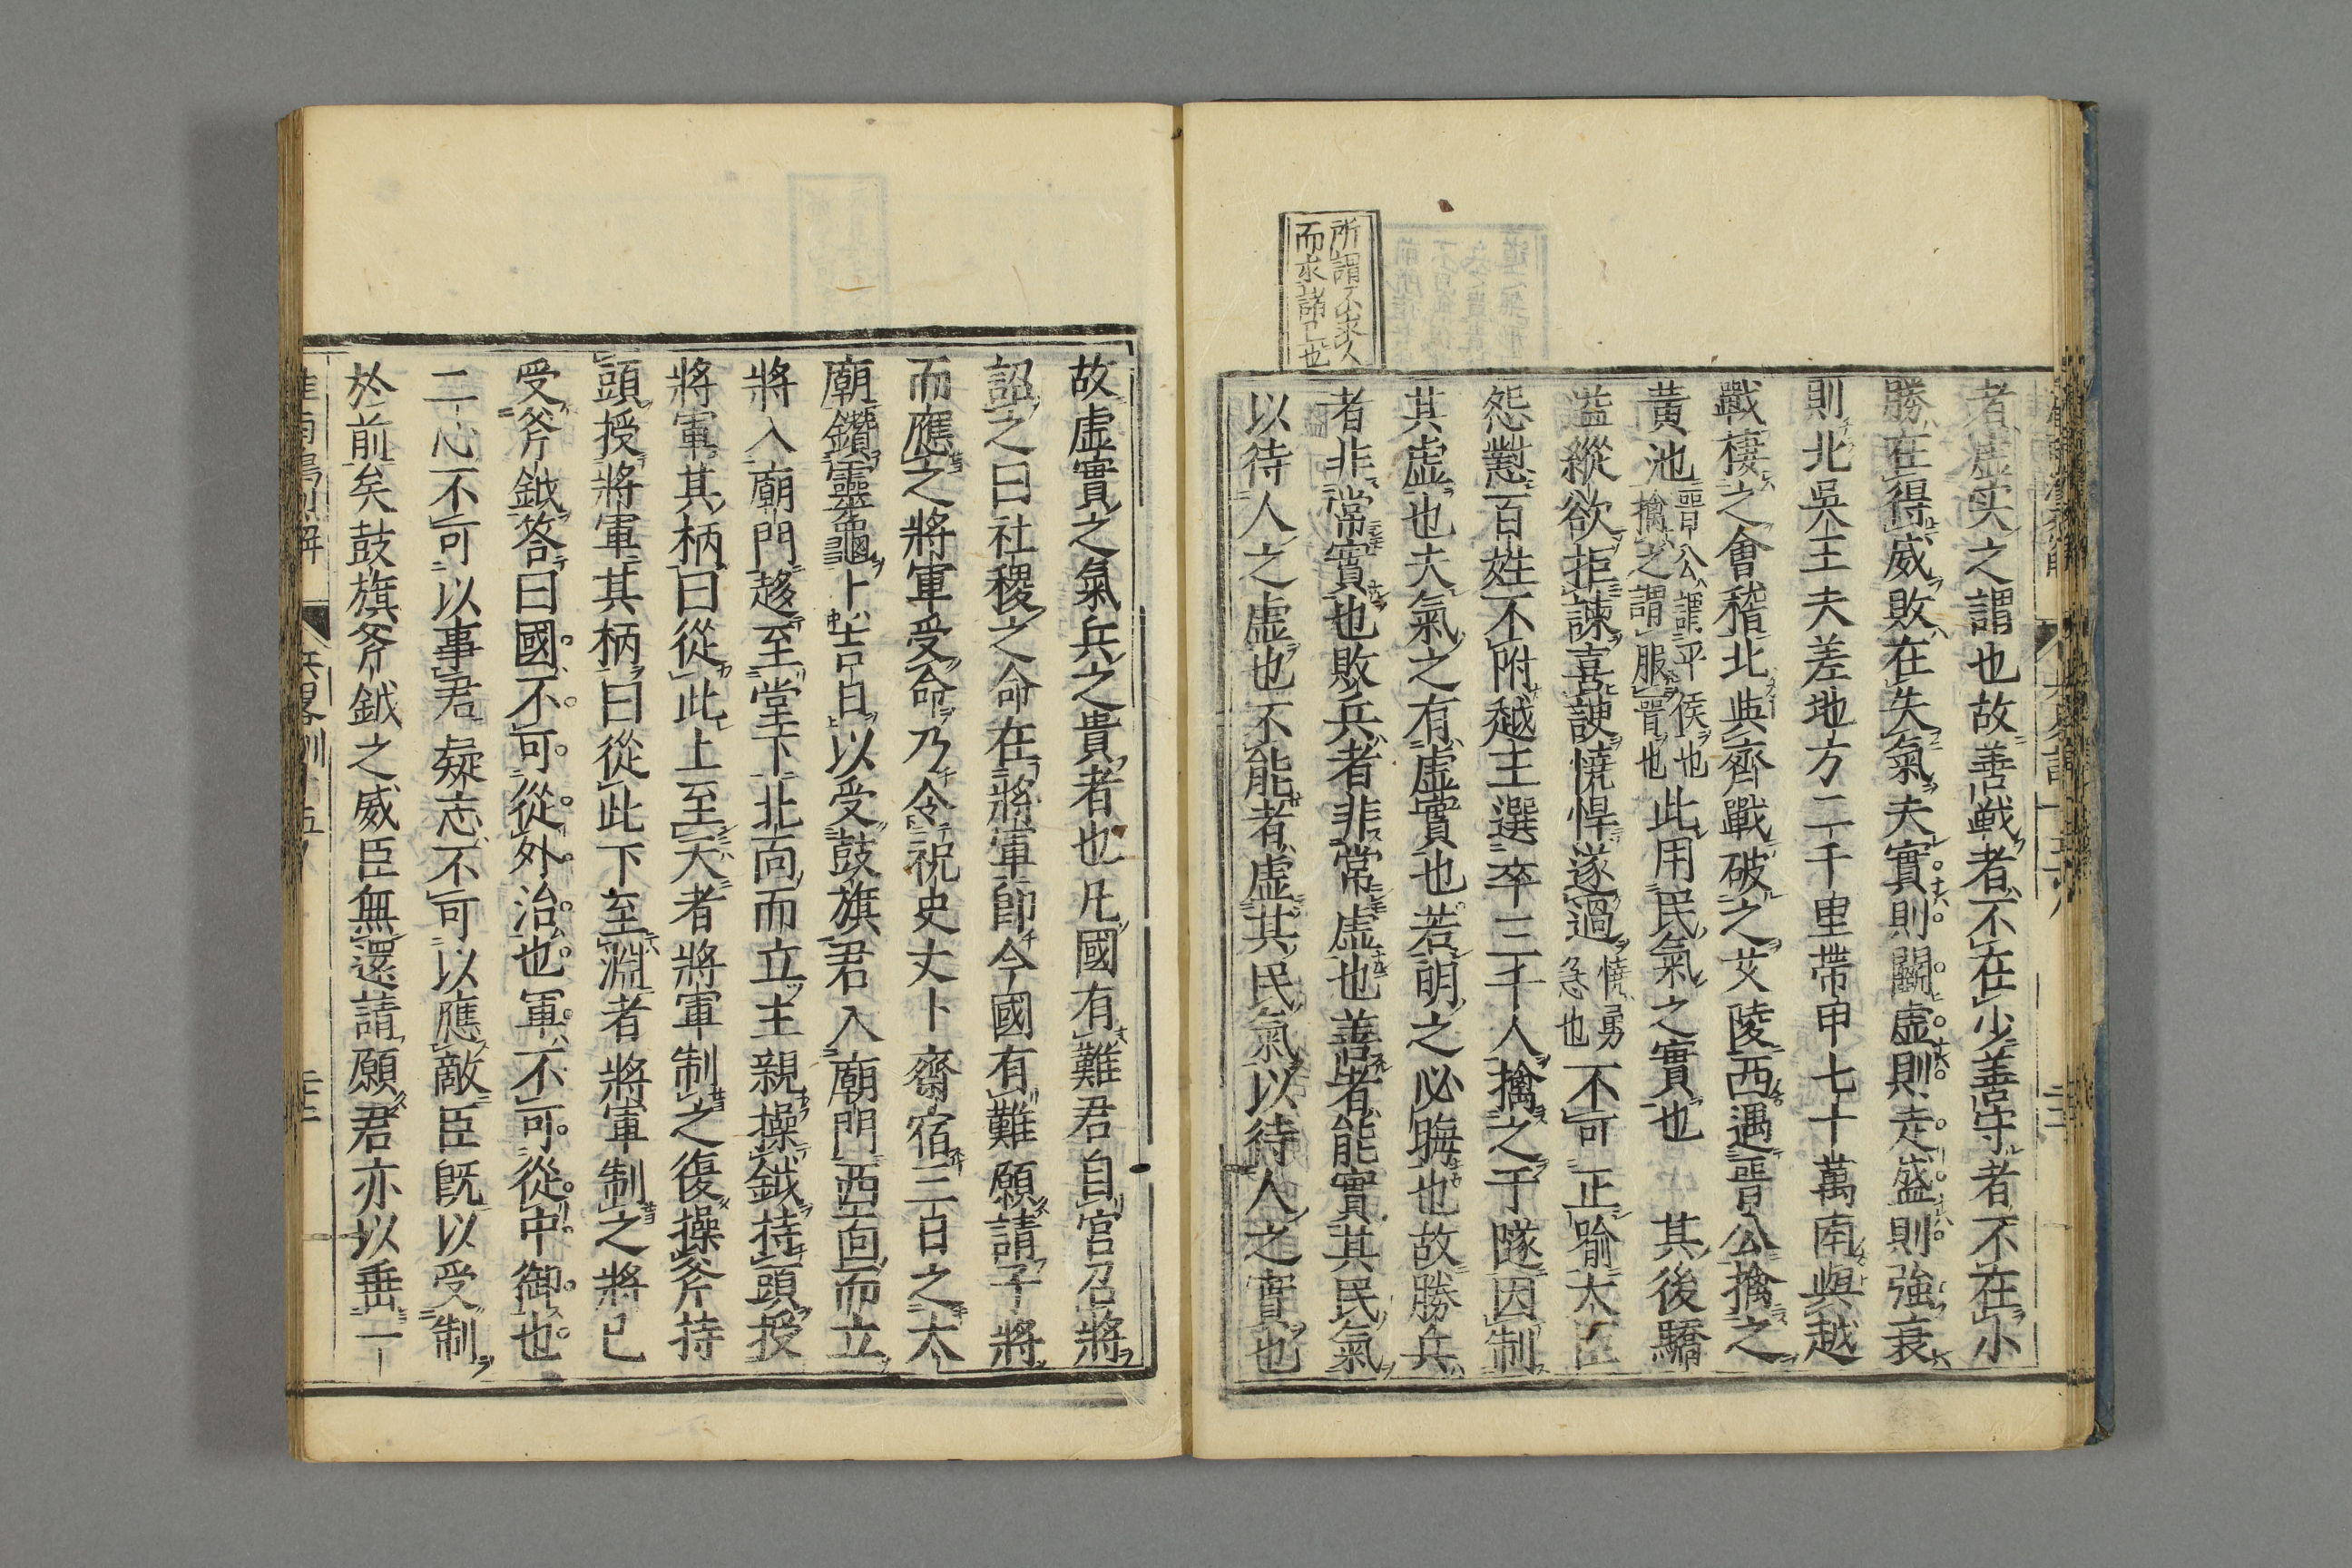 所謂不求人
而求諸己也
者虛实之謂也故善戦者不在少善守者不在小
勝在得威敗在失氣夫實則鬬虛則走盛則強衰
則北吳王夫差地方二千里帶甲七十萬南與越
戰棲之會稽北與齊戰破之艾陵西遇晉公擒之
黃池晉公謂平侯也擒之謂服晉也此用民氣之實也其後驕
溢縱欲拒諫喜諛憢悍遂過憢勇急也不可正喻大臣
怨懟百姓不附越王選卒三千人擒之于隧因制
其虛也夫氣之有虛實也若明之必晦也故勝兵
者非常實也敗兵者非常虛也善者能實其民氣
以待人之虛也不能者虛其民氣以待人之實也
故虛實之氣兵之貴者也凡國有難君自宮召將
詔之曰社稷之命在將軍即今國有難願請子將
而應之將軍受命乃令祝史太卜齋宿三日之太
廟鑽靈龜卜吉日以受鼓旗君入廟門西面而立
將入廟門趍至堂下北面而立主親操鉞持頭授
將軍其柄曰從此上至天者將軍制之復操斧持
頭授將軍其柄曰從此下至淵者將軍制之將已
受斧鉞答曰國不可從外治也軍不可從中御也
二心不可以事君疑志不可以應敵臣既以受制
於前矣鼓旗斧鉞之威臣無還請願君亦以垂一